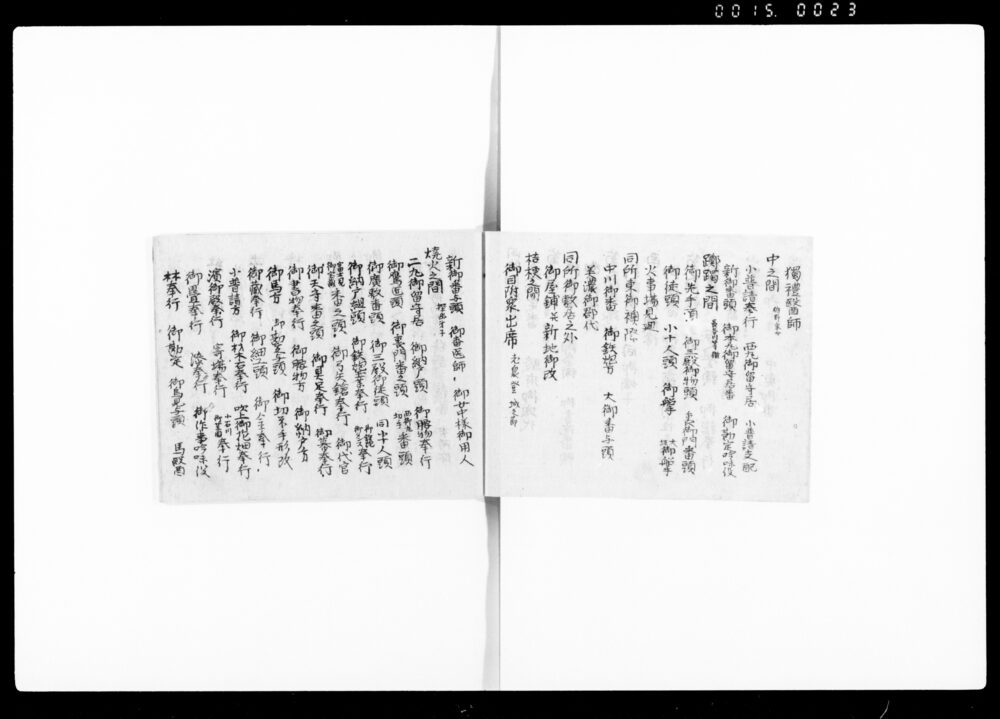 0015. 0023
獨禮醫師
中之間
小普請奉行 西丸御留守居 小普請支配
新御番頭 御本丸御留守居番 御勘定吟味役
躑躅之間
御先手頭 御三殿御物頭 御門番頭
御徒頭 小十人頭 御船手 大御船手
火事場見廻
同所東御襖際
中川御番 御鉄炮方 大御番与頭
美濃御郡代
同所御敷居之外
御屋鋪其新地御改
桔梗之間
御目附衆出席
新御番与頭 御番医師 御女中様御用人
焼火之間
二丸御留守居 御納戸頭 御腰物奉行
御鷹匠頭 御裏門番之頭 番頭
御廣敷番頭 御三殿御徒頭 同小十人頭
御納戸組頭 御鉄炮玉薬奉行 奉行
富士見 御宝蔵 番之頭 御弓矢鎗奉行 御代官
御天守番之頭 御具足奉行 御幕奉行
御書物奉行 御腰物方 御納戸方
御馬方 御勘定与頭 御切米手形改
御蔵奉行 御細工頭 御金奉行
小普請方 御材木石奉行 吹上御花畑奉行
濱御殿奉行 寄場奉行 小石川 奉行
御畳奉行 漆奉行 御作事吟味役
林奉行 御勘定 御鳥見与頭 馬醫